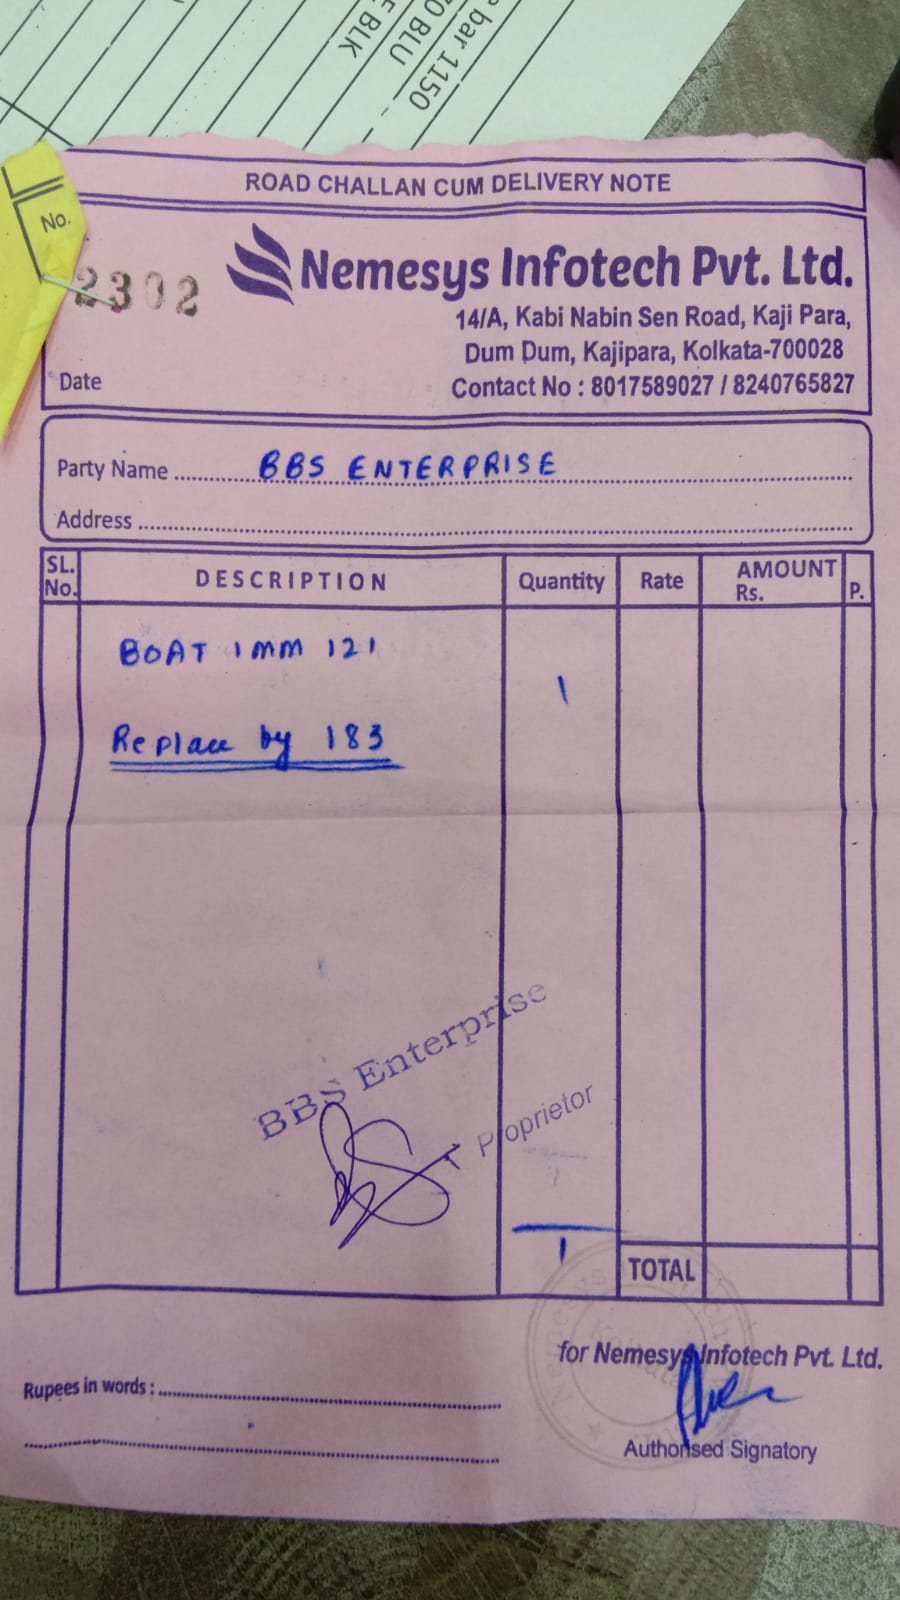 e bar 1150
70 BLU
E BLK
ROAD CHALLAN CUM DELIVERY NOTE
No.
2302
Nemesys Infotech Pvt. Ltd.
14/A, Kabi Nabin Sen Road, Kaji Para,
Dum Dum, Kajipara, Kolkata-700028
Date
Contact No : 8017589027 / 8240765827
Party Name BBS ENTERPRISE
Address
SL. No. DESCRIPTION Quantity Rate AMOUNT Rs. P.
BOAT IMM 121 1
Replace by 183
BBS Enterprise
Proprietor
1 TOTAL
for Nemesys Infotech Pvt. Ltd.
Rupees in words :
Authorised Signatory